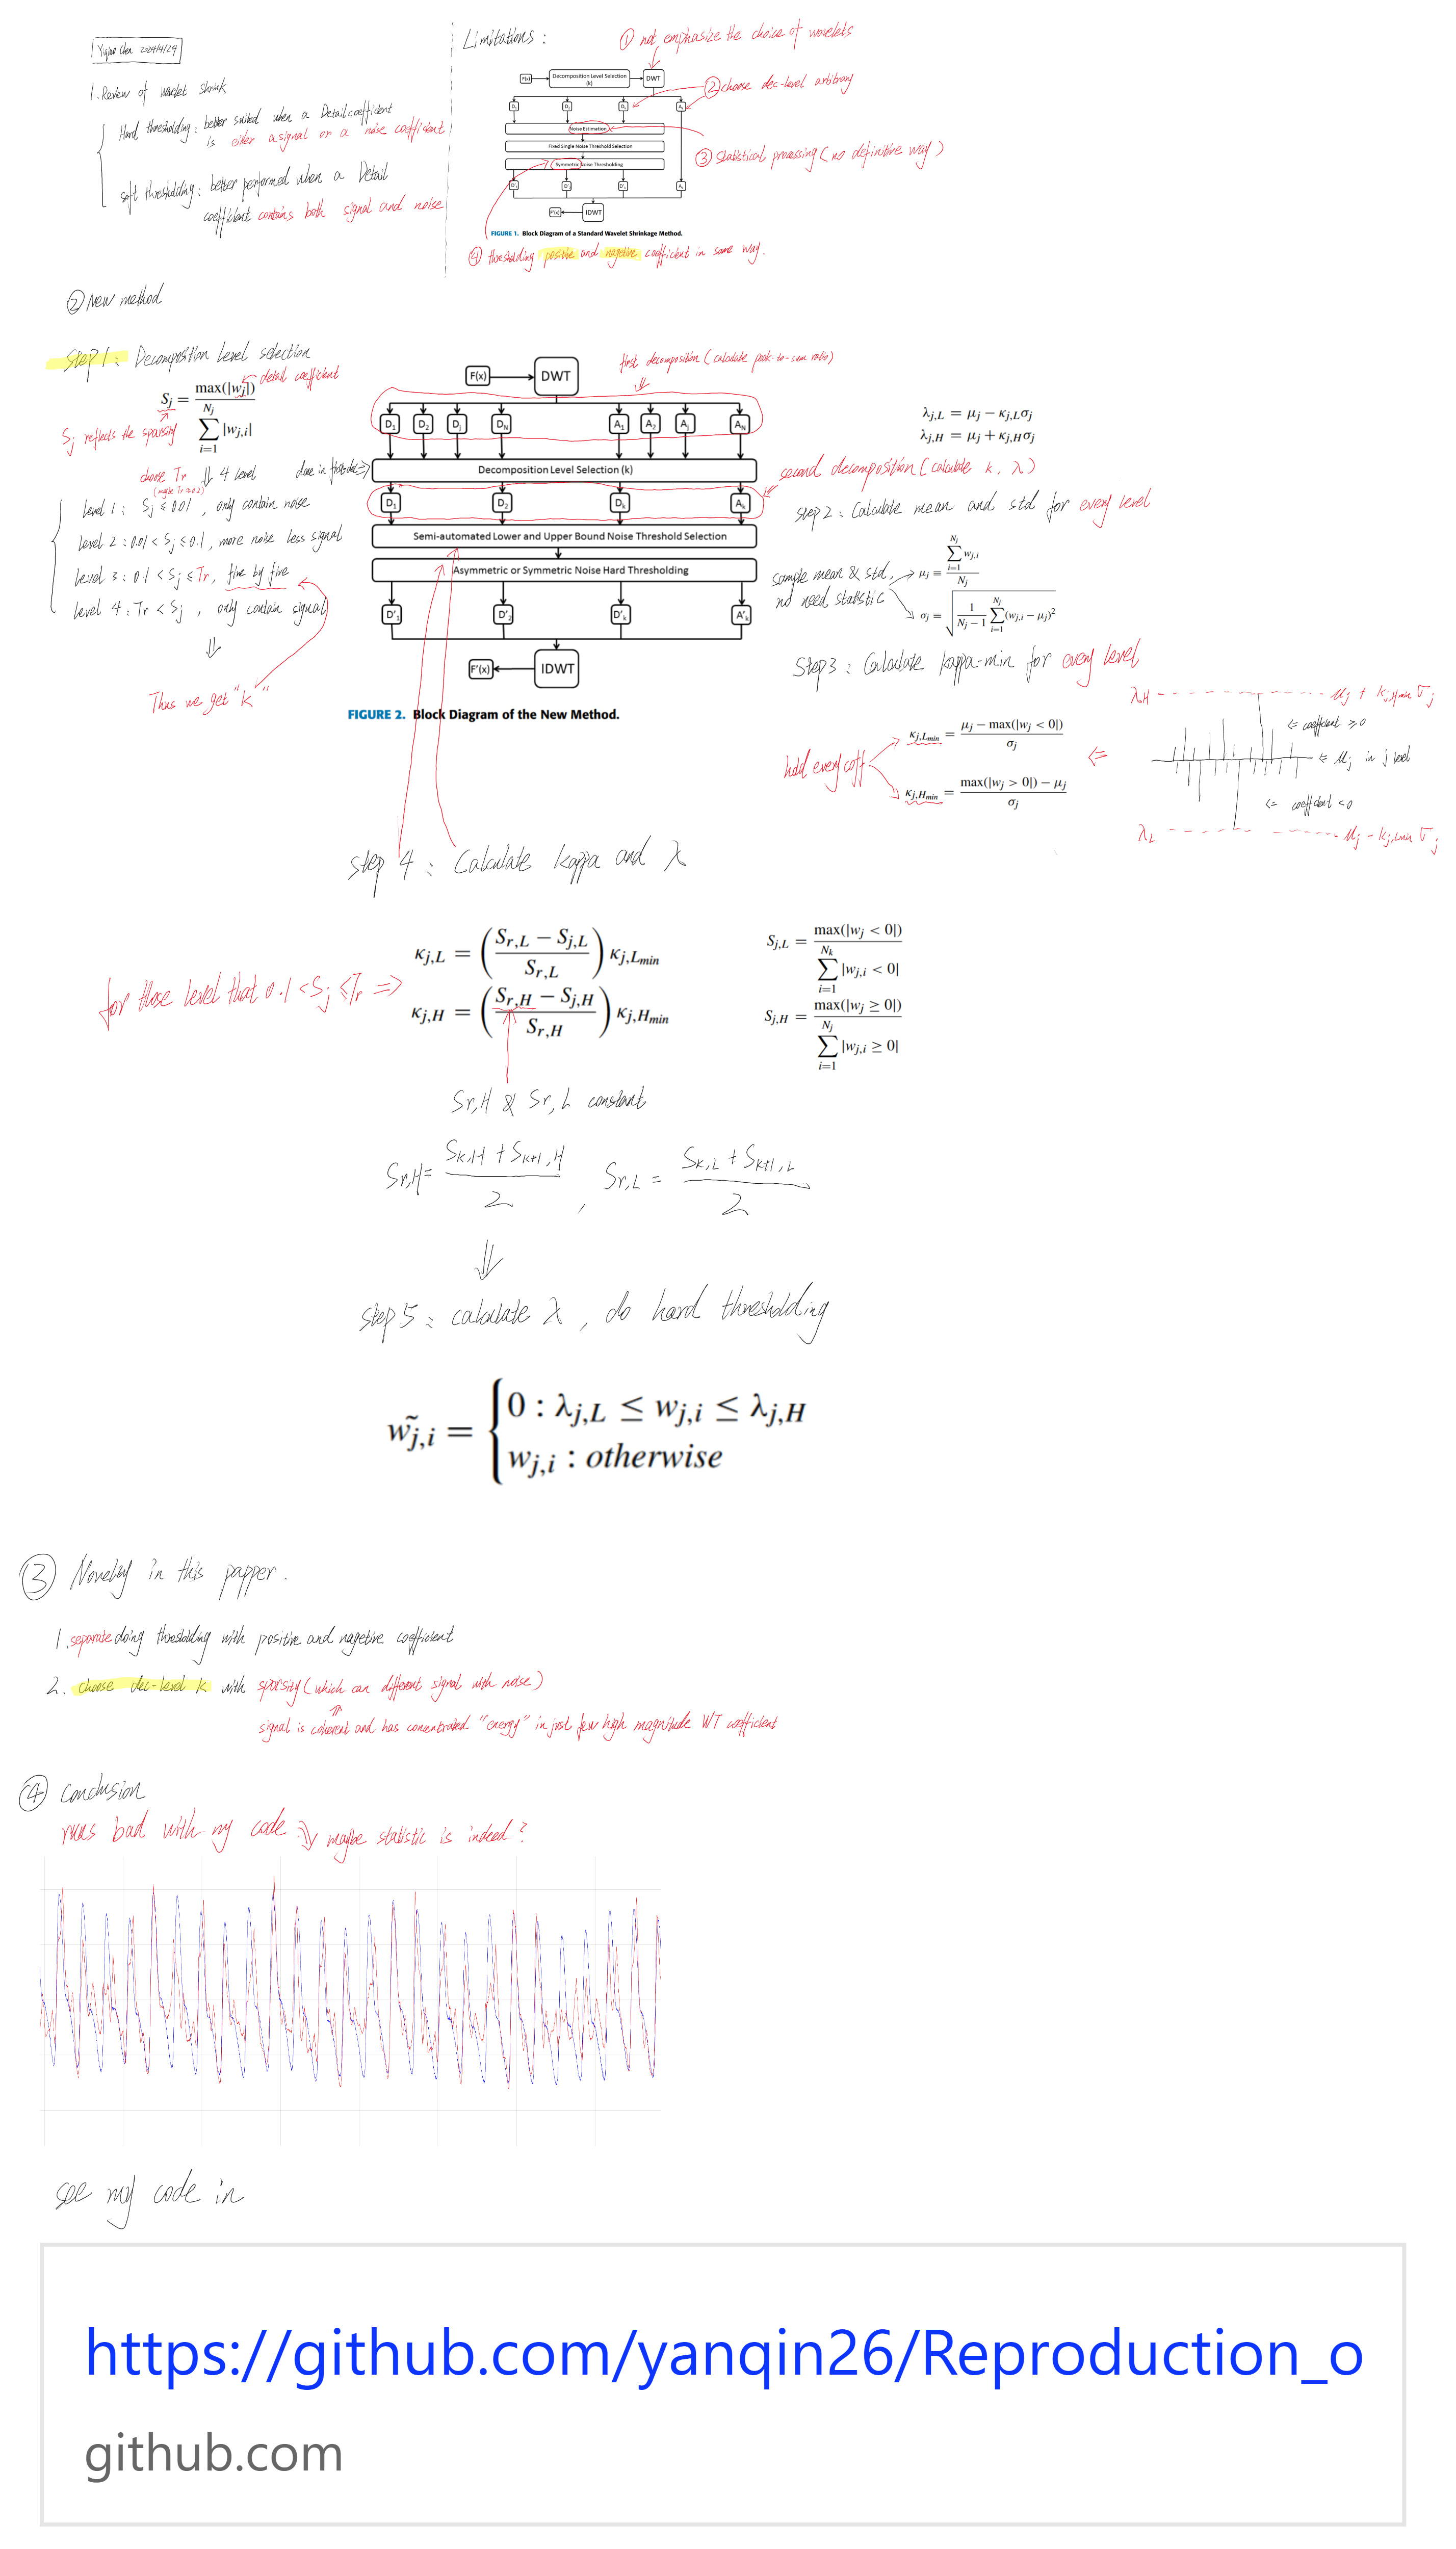 Yiqiao Chen 2024/4/24
1. Review of wavelet shrink
Hard thresholding: better suited when a Detail coefficient
is either a signal or a noise coefficient
soft thresholding: better performed when a Detail
coefficient contains both signal and noise
Limitations:
① not emphasize the choice of wavelets
F(x)
Decomposition Level Selection
(k)
DWT
② choose dec-level arbitrary
Noise Estimation
Fixed Single Noise Threshold Selection
③ statistical processing (no definitive way)
Symmetric Noise Thresholding
F'(x)
IDWT
FIGURE 1. Block Diagram of a Standard Wavelet Shrinkage Method.
④ thresholding positive and nagetive coefficient in same way.
② New method
Step 1: Decomposition Level selection
S_j = max(|w_j|) / Σ_{i=1}^{N_j} |w_{j,i}|
detail coefficient
S_j reflects the sparsity
choose Tr ⇓ 4 level
Level 1: S_j ≤ 0.01, only contain noise
Level 2: 0.01 < S_j ≤ 0.1, more noise less signal
Level 3: 0.1 < S_j ≤ Tr, five by five
Level 4: Tr < S_j, only contain signal
⇓
Thus we get "k"
first decomposition (calculate peak-to-sum ratio)
F(x)
DWT
D1 D2 Dj DN A1 A2 Aj AN
Decomposition Level Selection (k)
D1 D2 Dk Ak
Semi-automated Lower and Upper Bound Noise Threshold Selection
Asymmetric or Symmetric Noise Hard Thresholding
D'1 D'2 D'k A'k
F'(x)
IDWT
FIGURE 2. Block Diagram of the New Method.
λ_{j,L} = μ_j − κ_{j,L}σ_j
λ_{j,H} = μ_j + κ_{j,H}σ_j
second decomposition (calculate k, λ)
step 2: Calculate mean and std for every level
sample mean & std,
no need statistic
μ_j = Σ_{i=1}^{N_j} w_{j,i} / N_j
σ_j = √(1/(N_j−1) Σ_{i=1}^{N_j} (w_{j,i} − μ_j)²)
Step 3: Calculate kappa-min for every level
hold every coff
κ_{j,Lmin} = (μ_j − max(|w_j < 0|)) / σ_j
κ_{j,Hmin} = (max(|w_j > 0|) − μ_j) / σ_j
⇐
λ_H μ_j + k_{j,Hmin} σ_j
⇐ coefficient ≥ 0
⇐ μ_j in j level
⇐ coefficient < 0
λ_L μ_j − k_{j,Lmin} σ_j
step 4: Calculate kappa and λ
for those level that 0.1 < S_j ≤ Tr ⇒
κ_{j,L} = ((S_{r,L} − S_{j,L}) / S_{r,L}) κ_{j,Lmin}
κ_{j,H} = ((S_{r,H} − S_{j,H}) / S_{r,H}) κ_{j,Hmin}
S_{j,L} = max(|w_j < 0|) / Σ_{i=1}^{N_k} |w_{j,i} < 0|
S_{j,H} = max(|w_j ≥ 0|) / Σ_{i=1}^{N_j} |w_{j,i} ≥ 0|
Sr,H & Sr,L constant
Sr,H = (S_{k,H} + S_{k+1,H}) / 2 , Sr,L = (S_{k,L} + S_{k+1,L}) / 2
⇓
step 5: calculate λ, do hard thresholding
w̃_{j,i} = { 0 : λ_{j,L} ≤ w_{j,i} ≤ λ_{j,H}
w_{j,i} : otherwise
③ Novelty in this papper.
1. separate doing thresholding with positive and nagetive coefficient
2. choose dec-level k with sparsity (which can different signal with noise)
signal is coherent and has concentrated "energy" in just few high magnitude WT coefficient
④ Conclusion
runs bad with my code maybe statistic is indeed?
see my code in
https://github.com/yanqin26/Reproduction_o
github.com